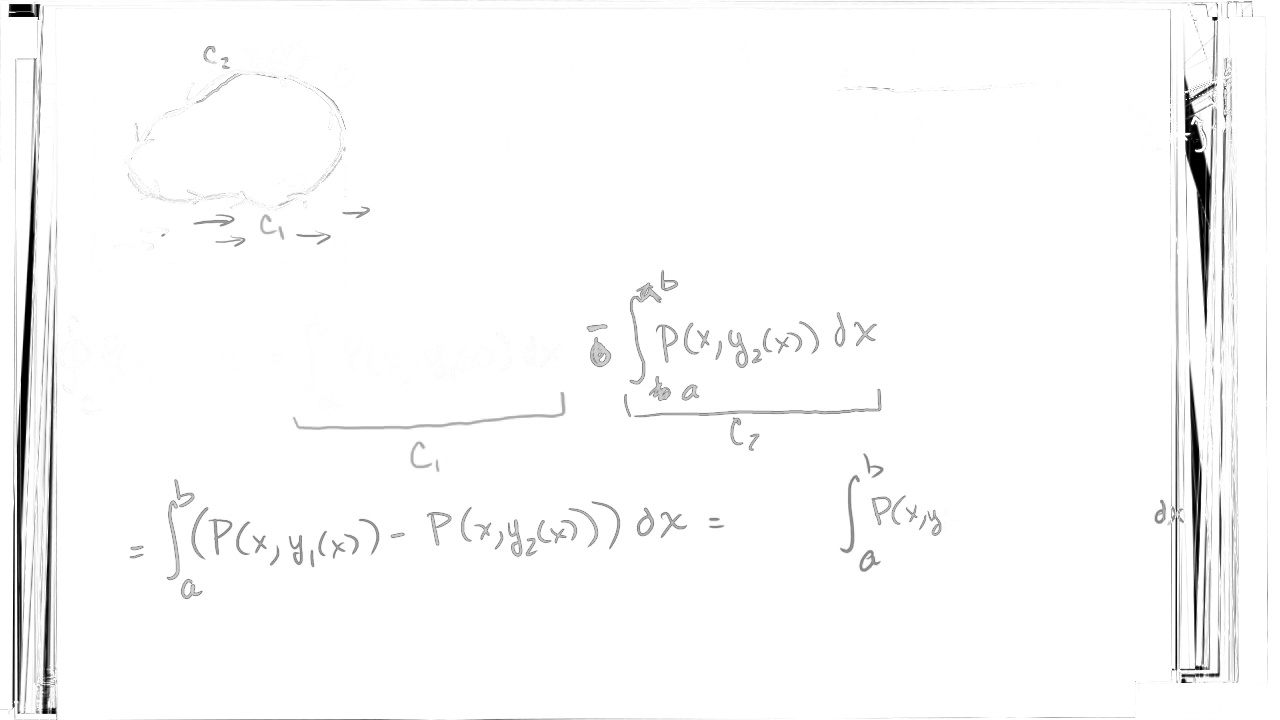 C₂
C₁
- ∫ₐᵇ P(x, y₂(x)) dx
C₁ C₂
= ∫ₐᵇ (P(x, y₁(x)) - P(x, y₂(x))) dx = ∫ₐᵇ P(x, y dx